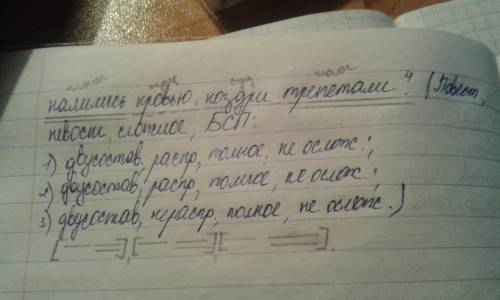 глагол сущ сущ глагол
налились кровью, ноздри трепетали⁴. (Повест,
невоскл, сложное, БСП:
1) двусостав, распр, полное, не ослож.;
2) двусостав, распр, полное, не ослож.;
3) двусостав, нераспр, полное, не ослож.)
[— =], [— =], [— =].